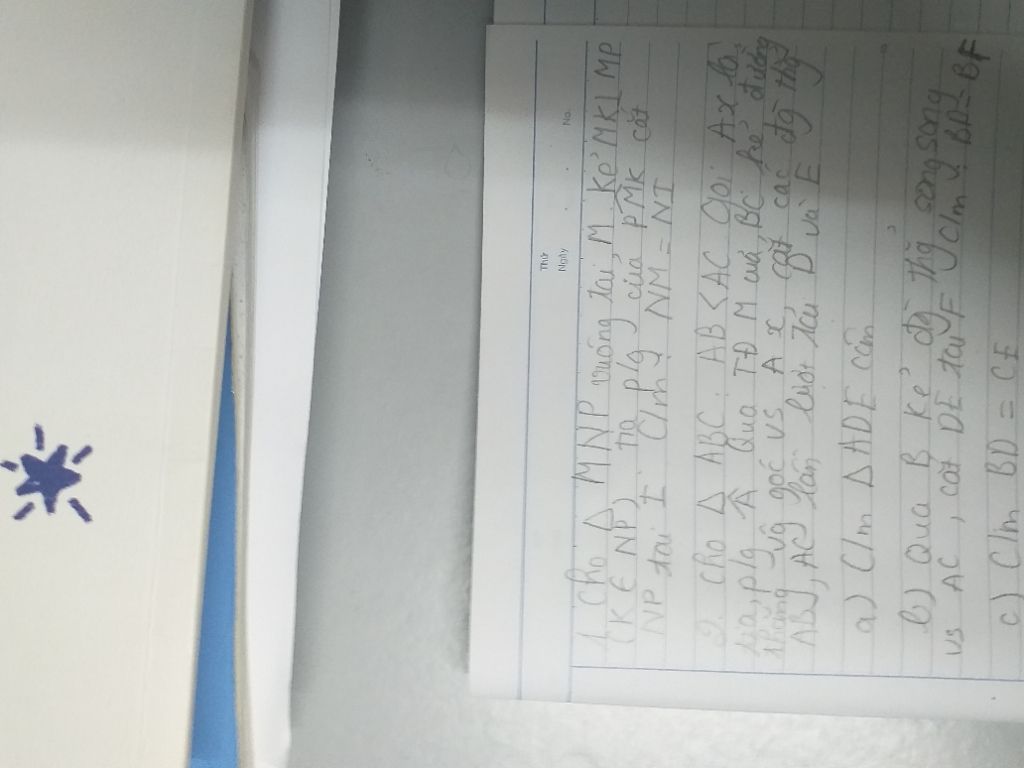 Thứ
Ngày
No.
1. Cho Δ MNP vuông tại M Kẻ MK⊥MP
(K ∈ NP) tia p/g của PMK cắt
NP tại I C/m: NM = NI
2. Cho Δ ABC: AB < AC Gọi Ax là
tia p/g Â Qua TĐ M của BC kẻ đường
thẳng vg góc vs Ax cắt các đg thg
AB, AC lần lượt tại D và E
a) C/m Δ ADE cân
b) Qua B kẻ đg thg song song
vs AC, cắt DE tại F C/m: BD=BF
c) C/m BD = CE